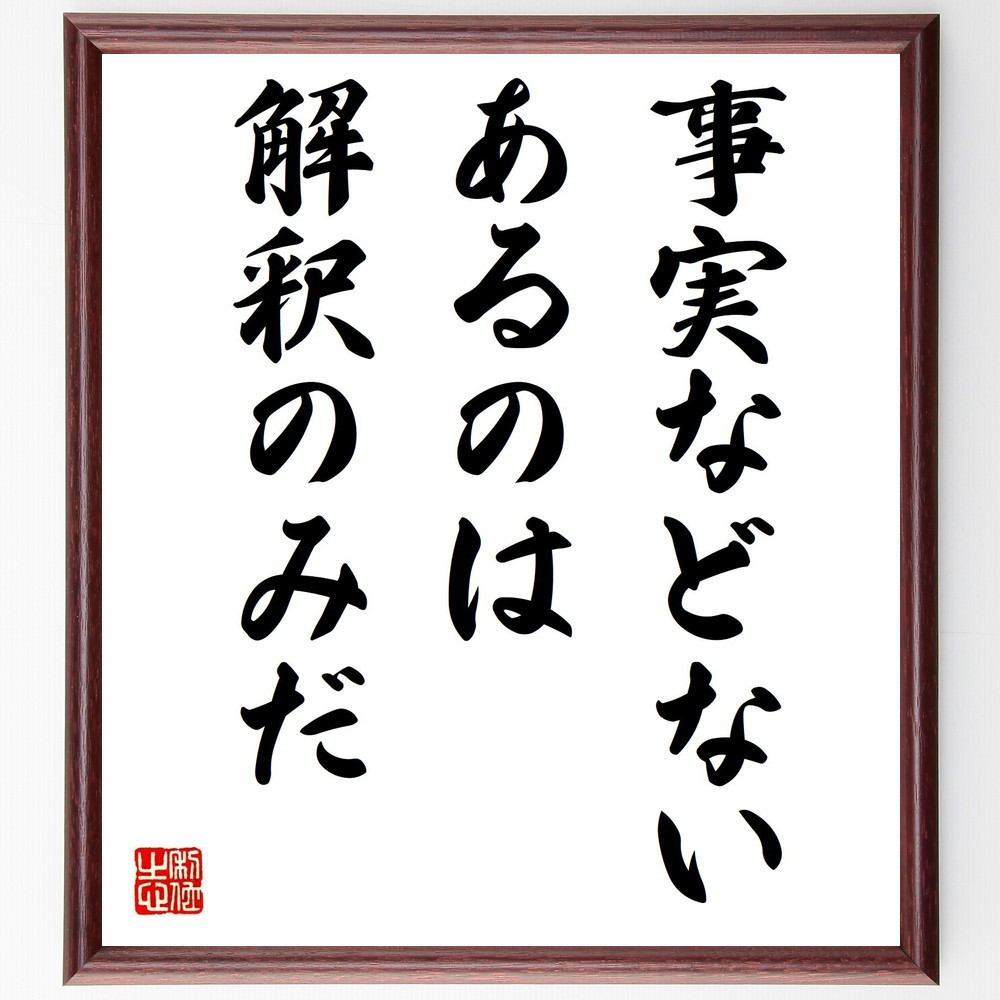 事実などない
あるのは
解釈のみだ